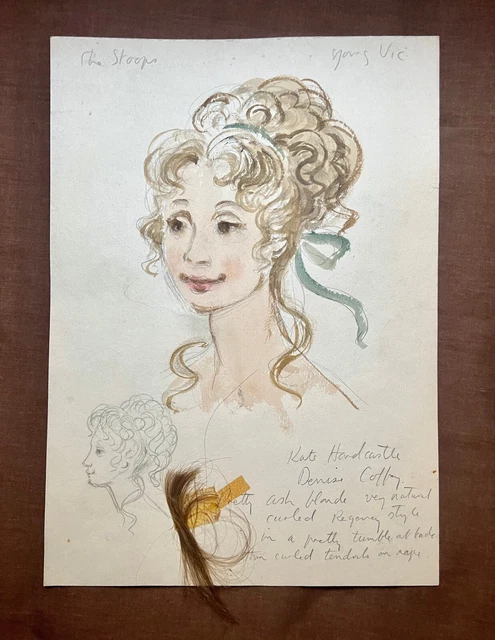 She Stoops
Young Vic
Kate Hardcastle
Denise Coffey
ash blonde very natural
curled Regency style
in a pretty tumble at back
curled tendrils on nape